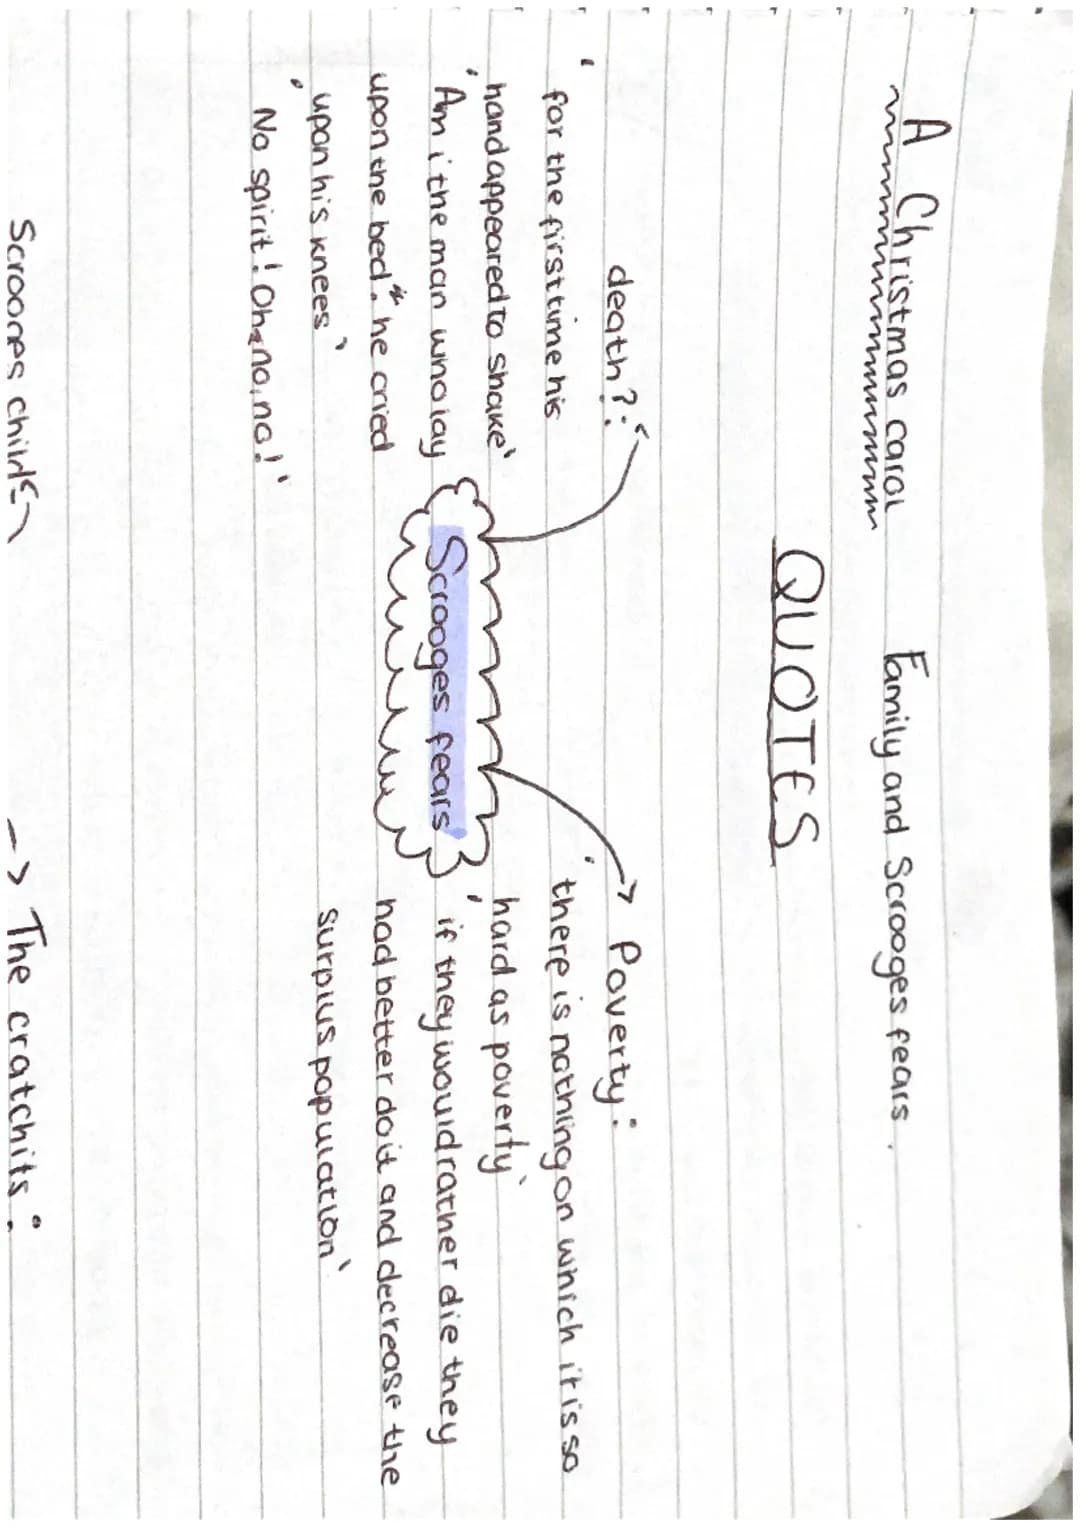 A Christmas carol
Family and Scrooges fears.
QUOTES
death?:
' for the first time his
hand appeared to shake'
' Am i the man who lay
upon the bed." he cried
upon his knees'
' No spirit! Oh no, no!'
Scrooges fears
Poverty:
' there is nothing on which it is so
hard as poverty'
' if they would rather die they
had better do it and decrease the
surplus population'
Scrooges child
-> The cratchits: